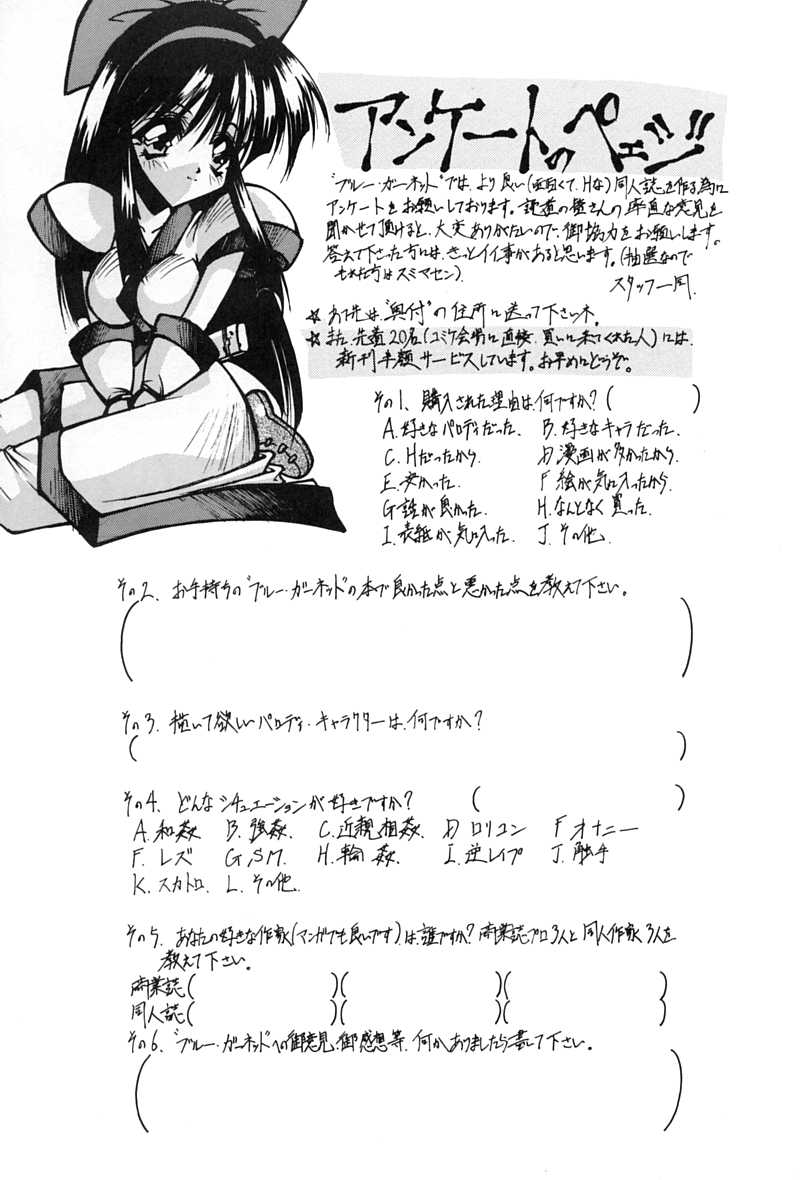 アンケートのペェジ!!
"ブルー・ガーネット"では、より良い(面白くて、Hな)同人誌を作る為に
アンケートをお願いしております。読者の皆さんの率直な意見を
聞かせて頂けると、大変ありがたいので、御協力をお願いします。
答えて下さった方には、きっとイイ事があると思います。(抽選なので
もれた方はスミマセン)
スタッフ一同.
☆ あて先は"奥付"の住所に送って下さいネ。
☆ また、先着20名(コミケ会場に直接、買いに来てくれた人)には、
新刊半額サービスしています。お早めにどうぞ。
その1、購入された理由は、何ですか?( )
A.好きなパロディだった. B.好きなキャラだった.
C.Hだったから. D.漫画が多かったから.
E.安かった. F.絵が気に入ったから.
G.話が良かった. H.なんとなく買った.
I.表紙が気に入った. J.その他.
その2、お手持ちの"ブルー・ガーネット"の本で良かった点と悪かった点を教えて下さい。
( )
その3、描いて欲しいパロディ・キャラクターは、何ですか?
( )
その4、どんなシチュエーションが好きですか? ( )
A.和姦 B.強姦. C.近親相姦. D ロリコン F オナニー
F.レズ G.SM. H.輪姦. I.逆レイプ J.触手
K.スカトロ. L.その他.
その5、あなたの好きな作家(マンガでも良いです)は、誰ですか?商業誌プロ3人と同人作家3人を
教えて下さい。
商業誌( )( )( )
同人誌( )( )( )
その6、"ブルー・ガーネット"への御意見、御感想等、何かありましたら書いて下さい。
( )